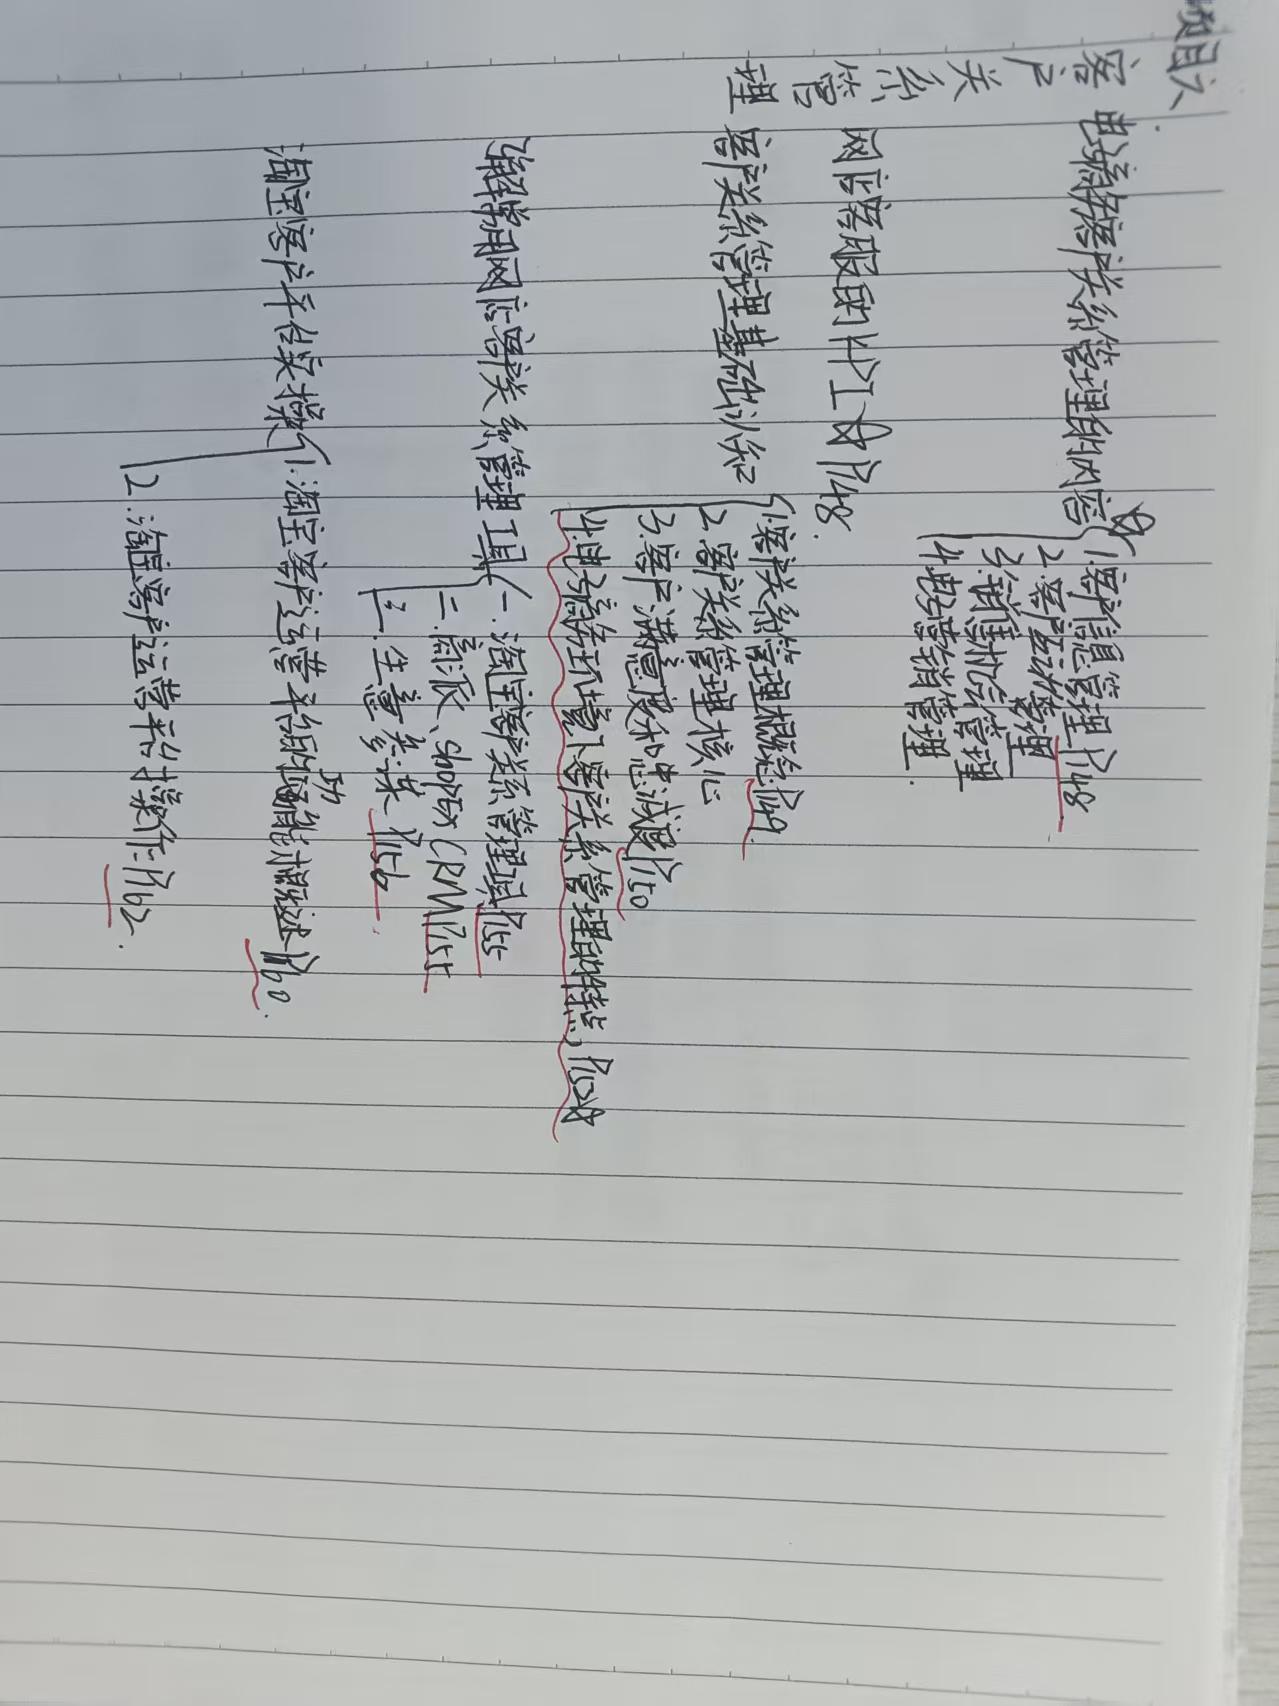 项目六
客户关系管理
电子商务客户关系管理的内容☆
1.客户信息管理 P148
2.客户互动管理
3.销售机会管理
4.电子营销管理.
网店客服的KPI☆ P148.
客户关系管理基础认知
1.客户关系管理概念 P149
2.客户关系管理核心
3.客户满意度和忠诚度 P150
4.电子商务环境下客户关系管理的特点, P152☆
了解常用网店客户关系管理工具
一.淘宝客户关系管理工具 P155
二.商派、shopEX CRM P155
三.生意参谋 P156.
淘宝客户平台实操
1.淘宝客户运营平台的功能概述 P160.
2.淘宝客户运营平台操作: P162.